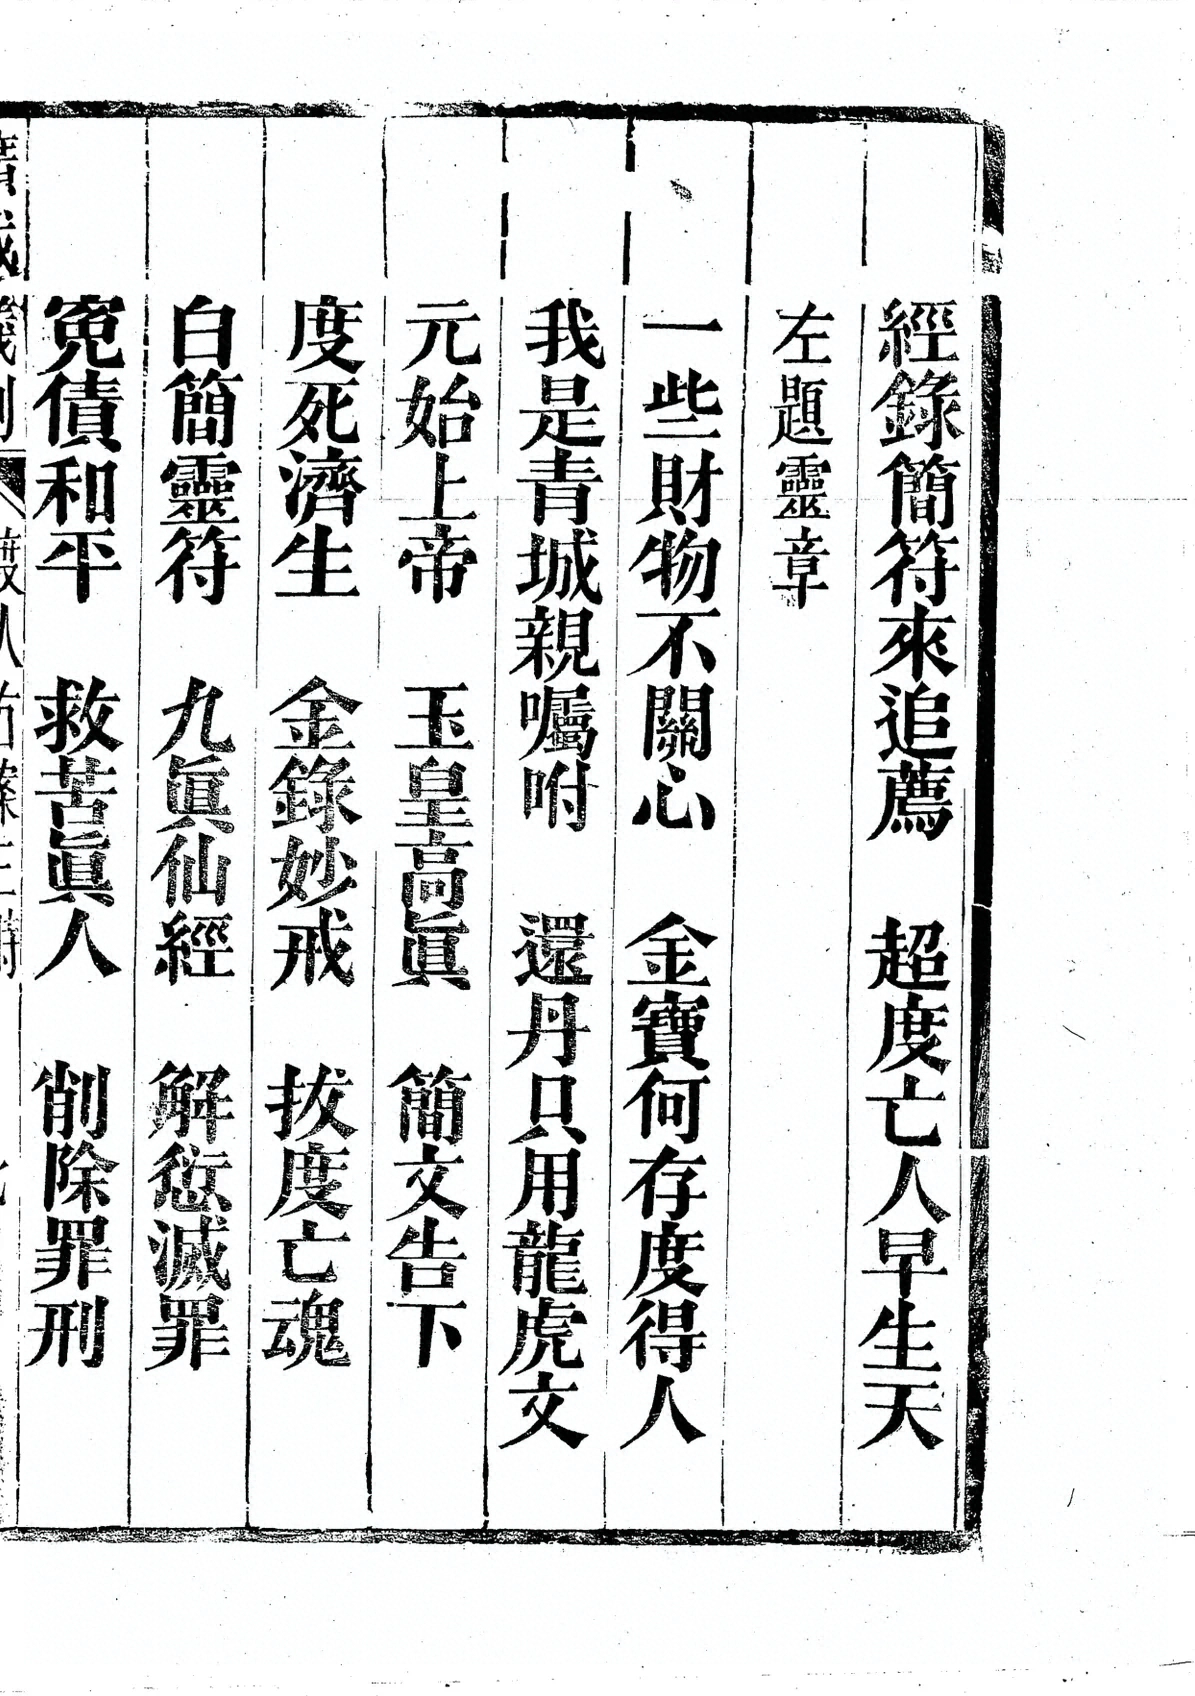 經錄簡符來追薦　超度亡人早生天
左題靈章
一些財物不關心　金寶何存度得人
我是青城親囑咐　還丹只用龍虎文
元始上帝　玉皇高眞　簡文告下
度死濟生　金錄妙戒　拔度亡魂
白簡靈符　九眞仙經　解愆滅罪
寃債和平　救苦眞人　削除罪刑